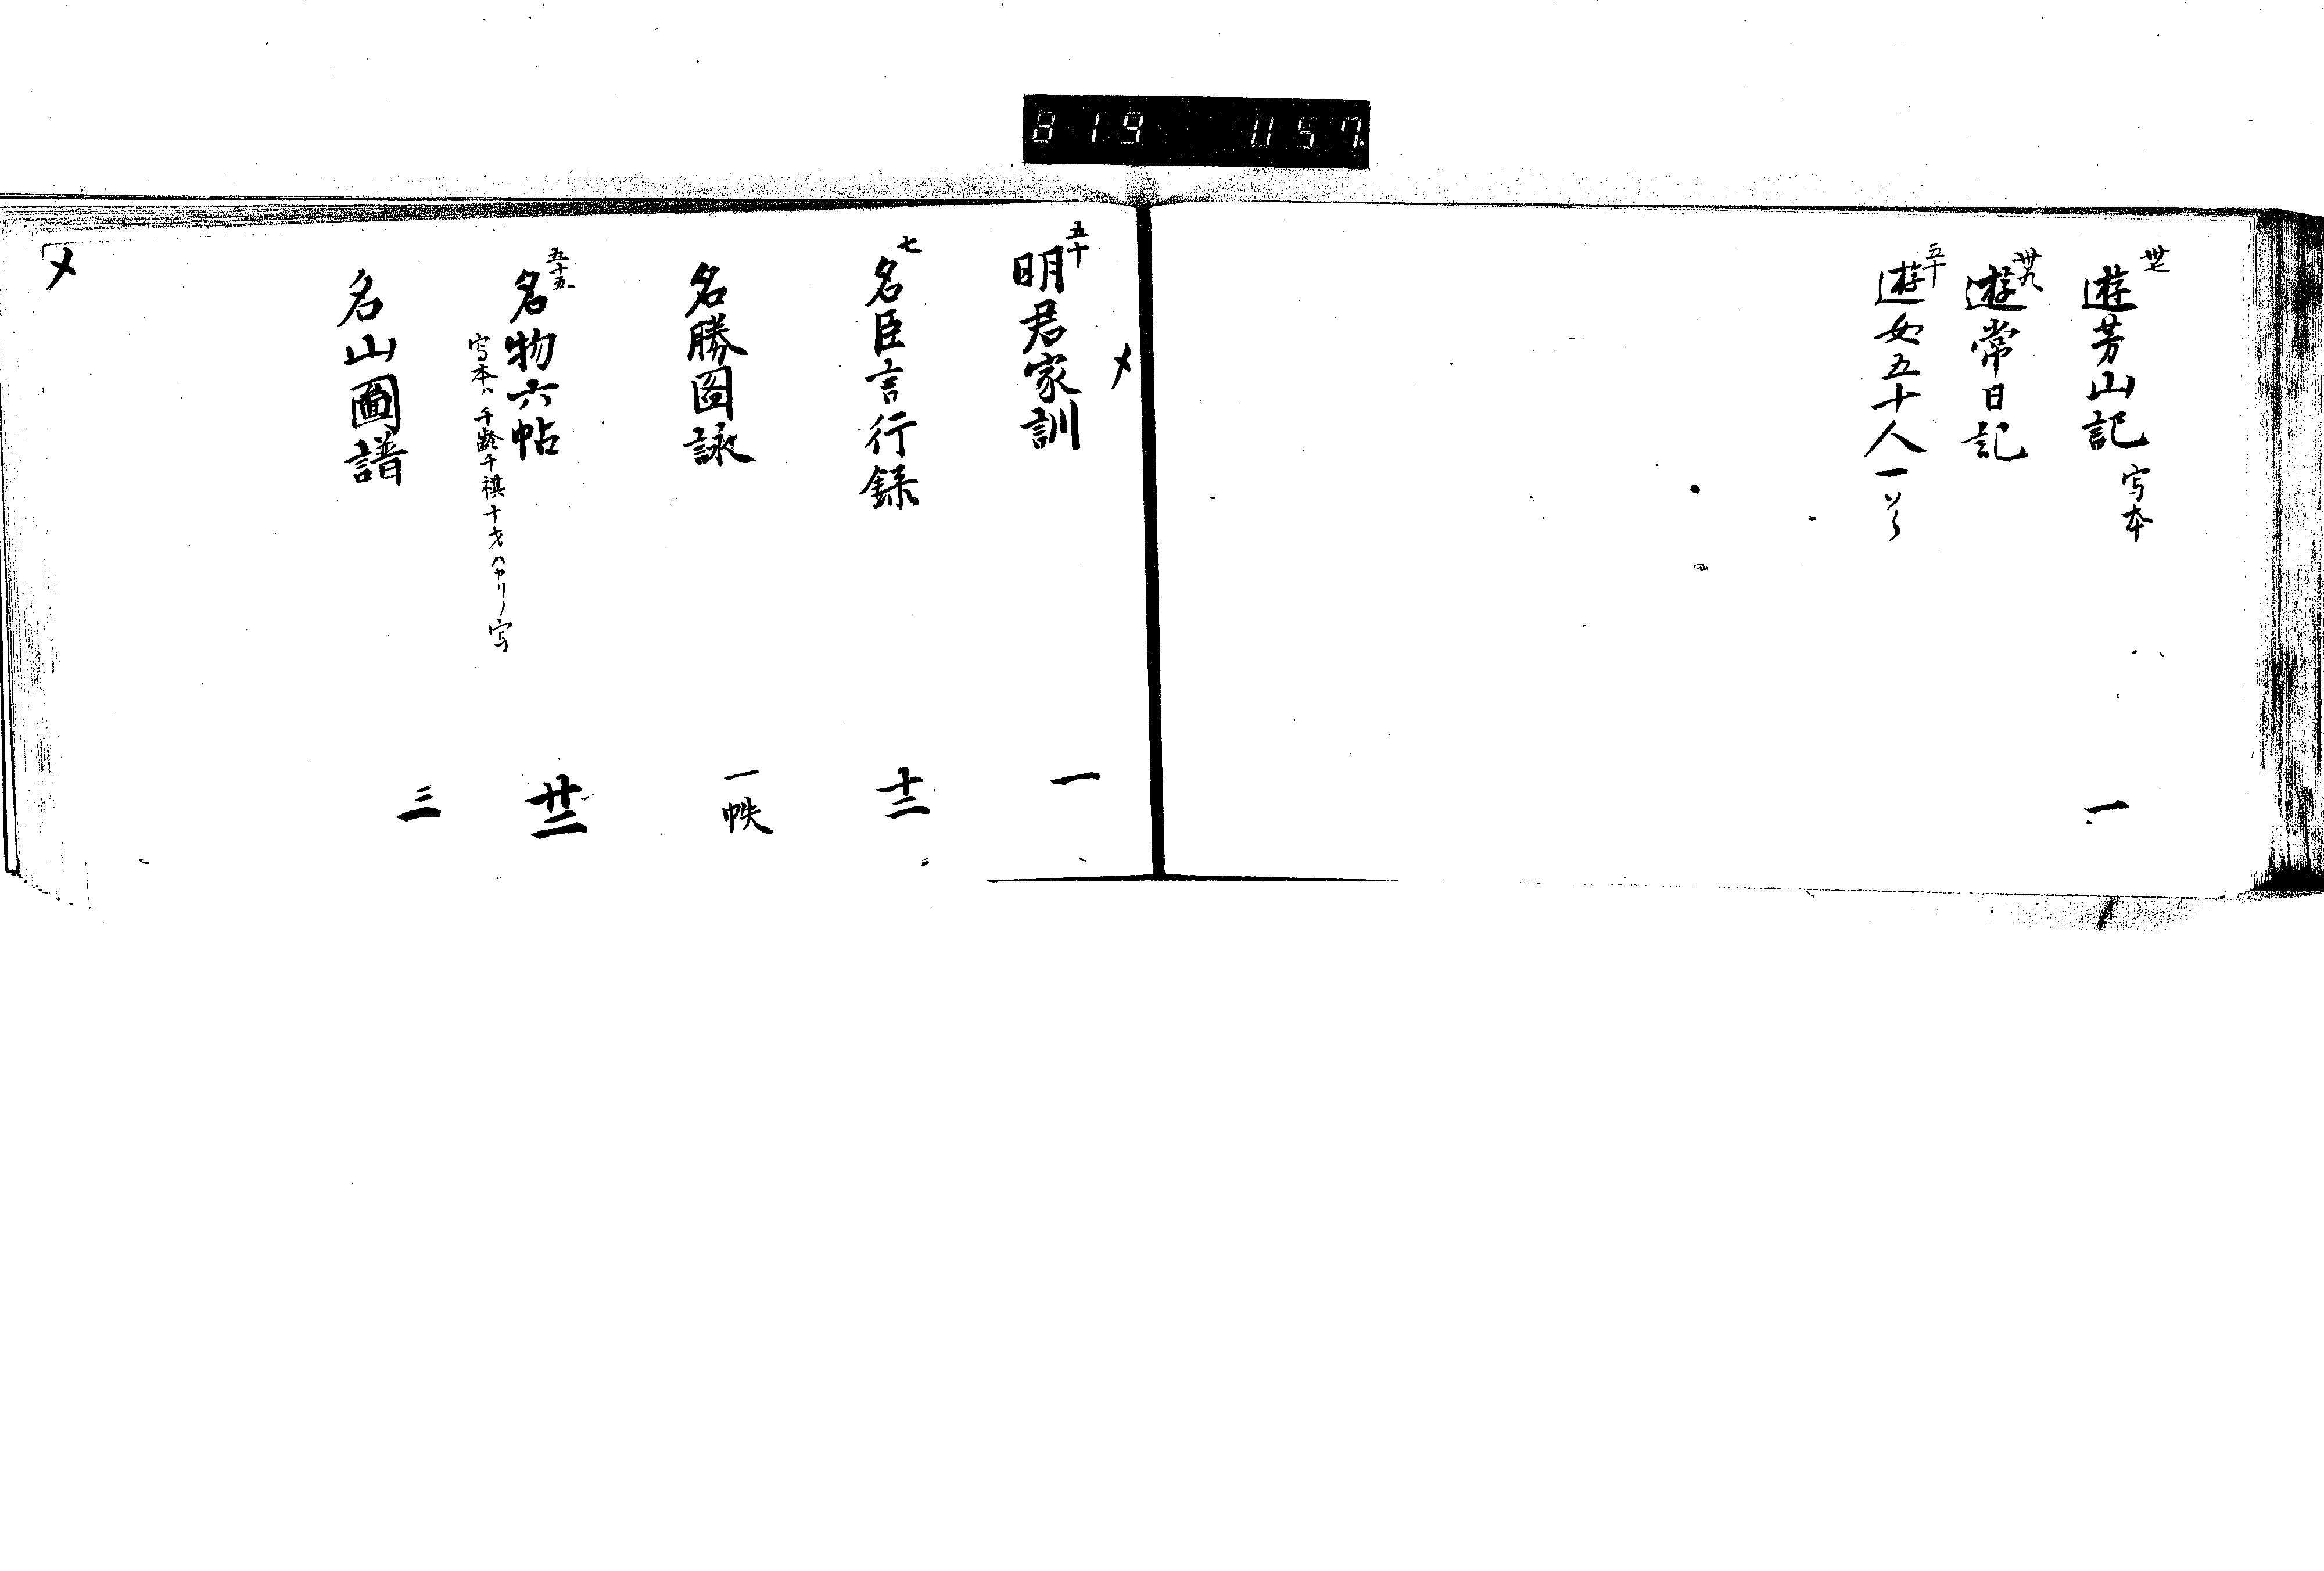 819 057
卅七
遊芳山記 写本 一
卅九
遊常日記
五十
遊女五十人一
メ
五十
明君家訓 一
七
名臣言行録 十二
名勝図詠 一帙
五十五
名物六帖 廿二
写本ハ千齢千祺十才ハカリノ写
名山圖譜 三
メ